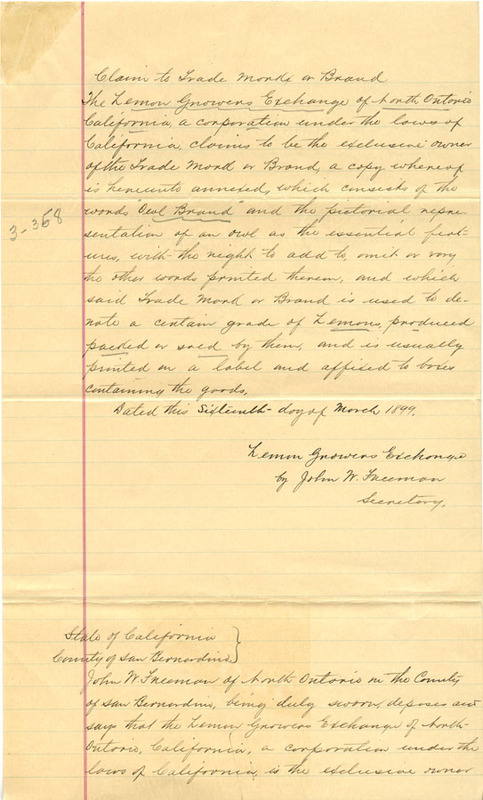 Claim to Trade Mark or Brand
The Lemon Growers Exchange of North Ontario
California, a corporation under the laws of
California, claims to be the exclusive owner
of the Trade Mark or Brand, a copy whereof
is hereunto annexed, which consists of the
words "Owl Brand" and the pictorial repre-
sentation of an owl as the essential feat-
ures, with the right to add to, omit or vary
the other words printed therein, and which
said Trade Mark or Brand is used to de-
note a certain grade of Lemons, produced
packed or sold by them, and is usually
printed on a label and affixed to boxes
containing the goods.
Dated this Sixteenth day of March 1899.
3-358
Lemon Growers Exchange
by John W. Freeman
Secretary.
State of California }
County of San Bernardino }
John W. Freeman of North Ontario in the County
of San Bernardino, being duly sworn, deposes and
says that the Lemon Growers Exchange of North
Ontario, California, a corporation under the
laws of California, is the exclusive owner